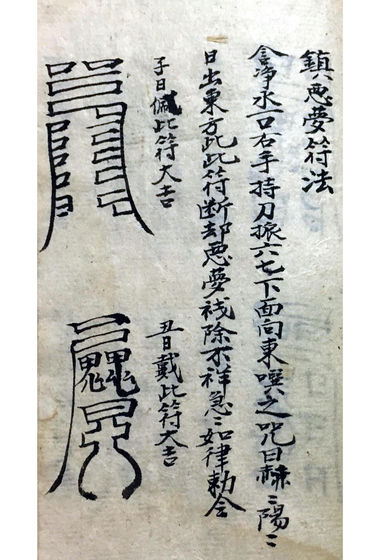 鎮悪夢符法
含净水一口右手持刀振六七下面向東噀之呪曰赫〻陽〻
日出東方此此符断却悪夢祓除不祥急〻如律勅令
子日佩此符大吉
丑日戴此符大吉